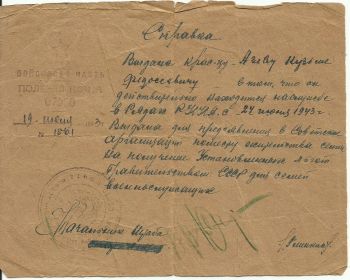 Справка
Выдана Кр-цу Агееву Кузьме
Федосеевичу в том, что он
действительно находится на службе
в рядах Р.К.К.А. с 24 июня 1943 г.
Выдана для предъявления в Советские
организации по месту жительства семьи
на получение установленных льгот
Правительством СССР для семей
военнослужащих
ВОИНСКАЯ ЧАСТЬ
ПОЛЕВАЯ ПОЧТА
19 июля 3 г.
№ 1561
Начальник Штаба